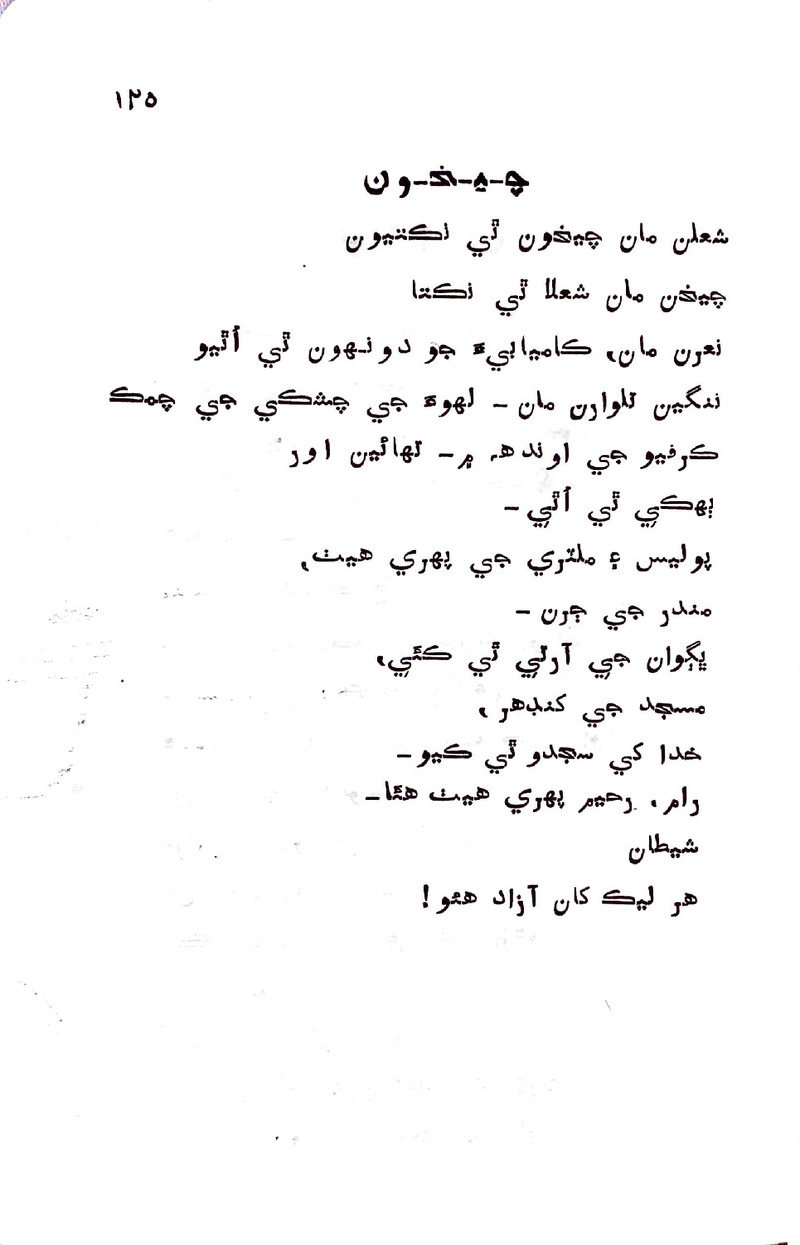 ۱۲۵
چ-ي-خ-ون
شعلن مان چيخون ٿي نڪتيون
چيخن مان شعلا ٿي نڪتا
نعرن مان، ڪاميابيءَ جو دونهون ٿي اُٿيو
ننگين تلوارن مان - لهوءَ جي چشڪي جي چمڪ
ڪرفيو جي اونده ۾ - تهائين اور
ٻهڪي ٿي اُٿي -
پوليس ۽ ملٽري جي پهري هيٺ،
مندر جي چرن -
ڀڳوان جي آرتي ٿي ڪئي،
مسجد جي کنڊهر،
خدا کي سجدو ٿي ڪيو -
رام، رحيم پهري هيٺ هئا -
شيطان
هر ليڪ کان آزاد هئو!